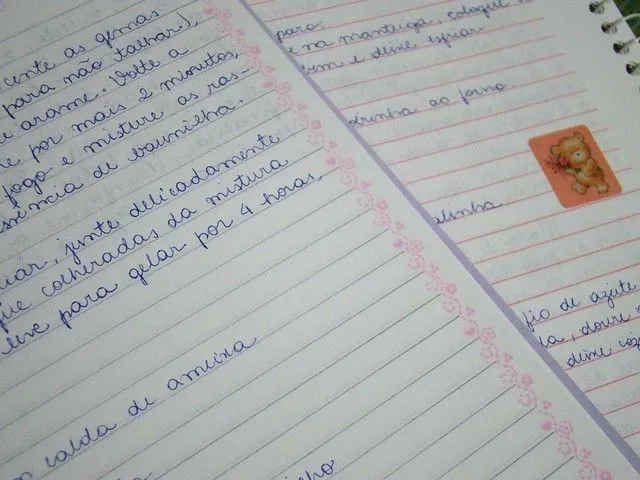 cente as gemas
para não talhar),
e arame. Volte a
e por mais 2 minutos,
fogo e misture as ras-
sência de baunilha.
uar, junte delicadamente
que colheradas da mistura
leve para gelar por 4 horas.
calda de ameixa
para
e na manteiga, coloque
em e deixe esfriar.
ao forno.
fio de azeite
la, doure
deixe